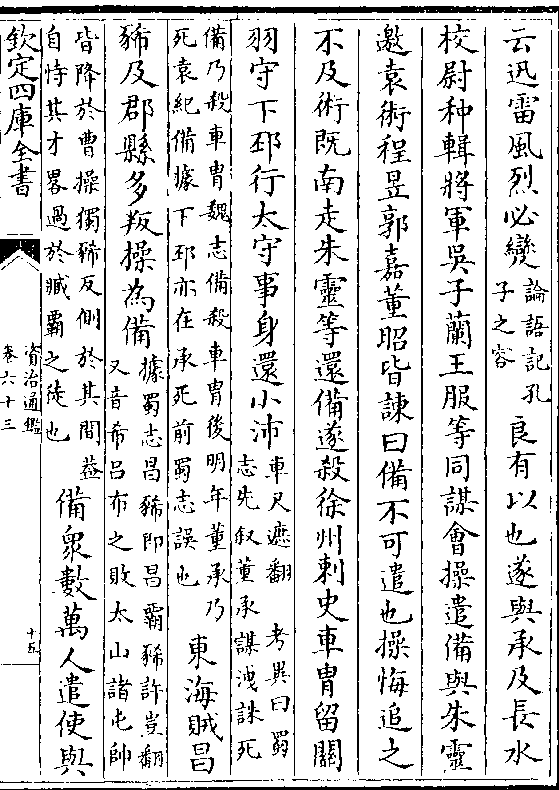 云迅雷風烈必變論語記孔子之容良有以也遂與承及長水
校尉种輯將軍吳子蘭王服等同謀會操遣備與朱靈
邀袁術程昱郭嘉董昭皆諫曰備不可遣也操悔追之
不及術既南走朱靈等還備遂殺徐州刺史車胄留關
羽守下邳行太守事身還小沛車尺遮翻 考異曰蜀志先叙董承謀洩誅死
備乃殺車胄魏志備殺車胄後明年董承乃死袁紀備據下邳亦在承死前蜀志誤也東海賊昌
豨及郡縣多叛操為備據蜀志昌豨即昌霸豨許豈翻又音希吕布之敗太山諸屯帥
皆降於曹操獨豨反側於其間葢自恃其才畧過於臧霸之徒也備衆數萬人遣使與
欽定四庫全書
資治通鑑
卷六十三
十五